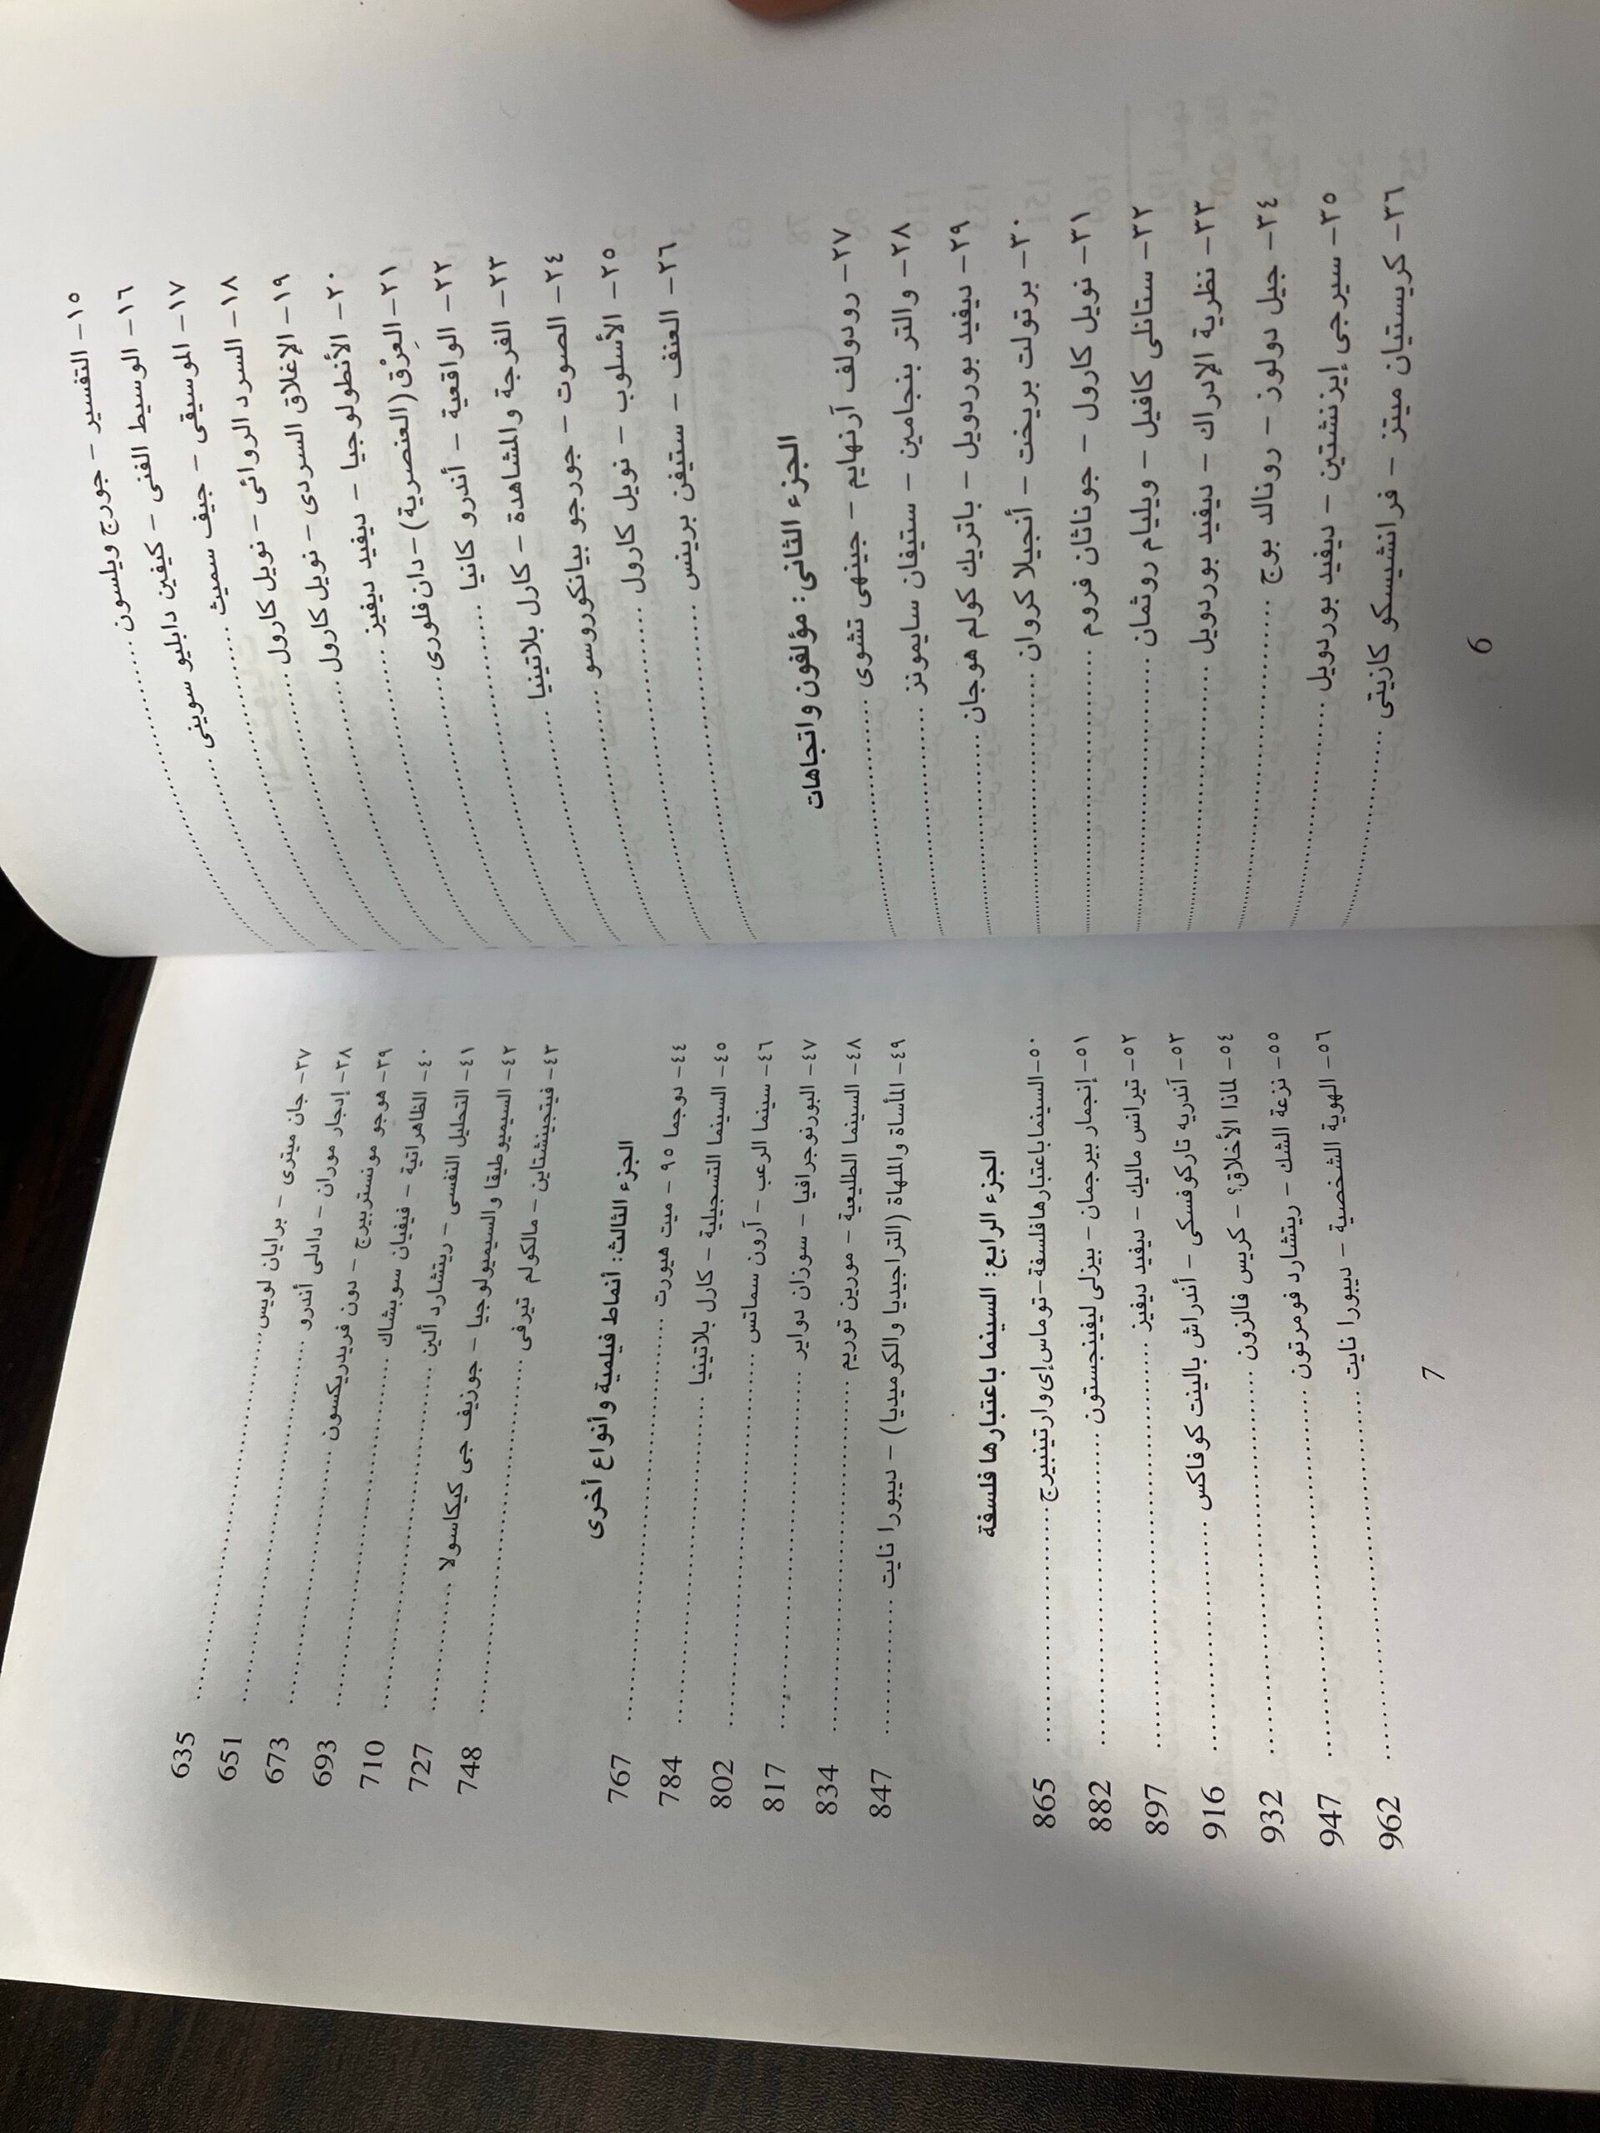 ١٥- التفسير - جورج ويلسون ......
١٦- الوسيط الفنى - كيفين دابليو سوينى ......
١٧- الموسيقى - جيف سميث ......
١٨- السرد الروائى - نويل كارول ......
١٩- الإغلاق السردى - نويل كارول ......
٢٠- الأنطولوجيا - ديفيد ديفيز ......
٢١- العِرْق (العنصرية) - دان فلورى ......
٢٢- الواقعية - أندرو كانيا ......
٢٣- الفرجة والمشاهدة - كارل بلاتينيا ......
٢٤- الصوت - جورجو بيانكوروسو ......
٢٥- الأسلوب - نويل كارول ......
٢٦- العنف - ستيفن برينس ......
الجزء الثانى: مؤلفون واتجاهات
٢٧- رودولف آرنهايم - جينهى تشوى ......
٢٨- والتر بنجامين - ستيفان سايمونز ......
٢٩- ديفيد بوردويل - باتريك كولم هوجان ......
٣٠- برتولت بريخت - أنجيلا كروان ......
٣١- نويل كارول - جوناثان فروم ......
٣٢- ستانلى كافيل - ويليام روثمان ......
٣٣- نظرية الإدراك - ديفيد بوردويل ......
٣٤- جيل دولوز - رونالد بوج ......
٣٥- سيرجى إيزنشتين - ديفيد بوردويل ......
٣٦- كريستيان ميتز - فرانشيسكو كازيتى ......
6
٣٧- جان ميترى - برايان لويس ...... 635
٣٨- إدجار موران - دادلى أندرو ...... 651
٣٩- هوجو مونستربيرج - دون فريدريكسون ...... 673
٤٠- الظاهراتية - فيفيان سوبشاك ...... 693
٤١- التحليل النفسى - ريتشارد ألين ...... 710
٤٢- السيميوطيقا والسيميولوجيا - جوزيف جى كيكاسولا ...... 727
٤٣- فيتجينشتاين - مالكولم تيرفى ...... 748
الجزء الثالث: أنماط فيلمية وأنواع أخرى
٤٤- دوجما ٩٥ - ميت هيورت ...... 767
٤٥- السينما التسجيلية - كارل بلاتينيا ...... 784
٤٦- سينما الرعب - آرون سماتس ...... 802
٤٧- البورنوجرافيا - سوزان دواير ...... 817
٤٨- السينما الطليعية - مورين توريم ...... 834
٤٩- المأساة والملهاة (التراجيديا والكوميديا) - ديبورا نايت ...... 847
الجزء الرابع: السينما باعتبارها فلسفة
٥٠- السينما باعتبارها فلسفة - توماس إى وارتينبيرج ...... 865
٥١- إنجمار بيرجمان - بيزلى ليفينجستون ...... 882
٥٢- تيرانس ماليك - ديفيد ديفيز ...... 897
٥٣- آندريه تاركوفسكى - أندراش بالينت كوفاكس ...... 916
٥٤- لماذا الأخلاق؟ - كريس فالزون ...... 932
٥٥- نزعة الشك - ريتشارد فومرتون ...... 947
٥٦- الهوية الشخصية - ديبورا نايت ...... 962
7